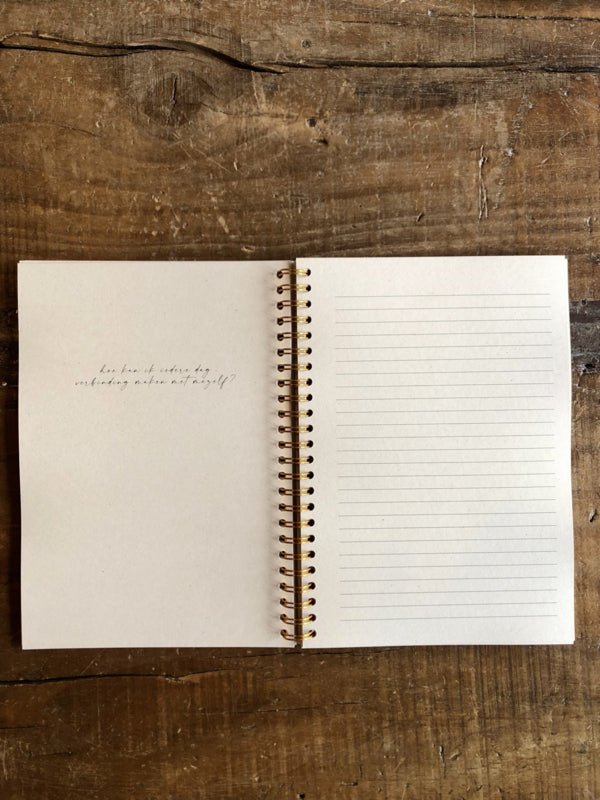 hoe kan ik iedere dag
verbinding maken met mezelf?